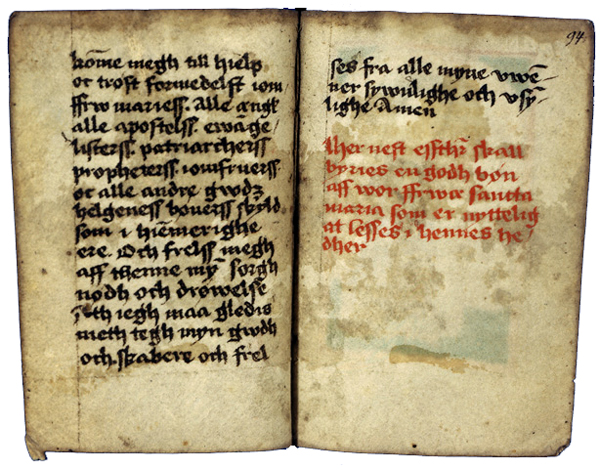 kōme megh till hielp
oc trost formedelst iom
ffrw mariess. Alle ængle
alle apostelss. ewāge
listerss. patriarcherss
propheterss. iomfruerss
oc alle andre gwdz
helgeness bønerss skyld
som i hiēmerighe
ere. Och frelss megh
aff thenne my sorgh
nodh och drøwelse
ath iegh maa gledis
meth tegh myn gwdh
och skabere och frel
94
ses fra alle myne vwē
ner sywnlighe och vsy
lighe Amen
Her nest effthr skall
bynes en godh bøn
aff wor ffrwæ sancta
maria som er nyttelig
at lesses i hennes he
dher